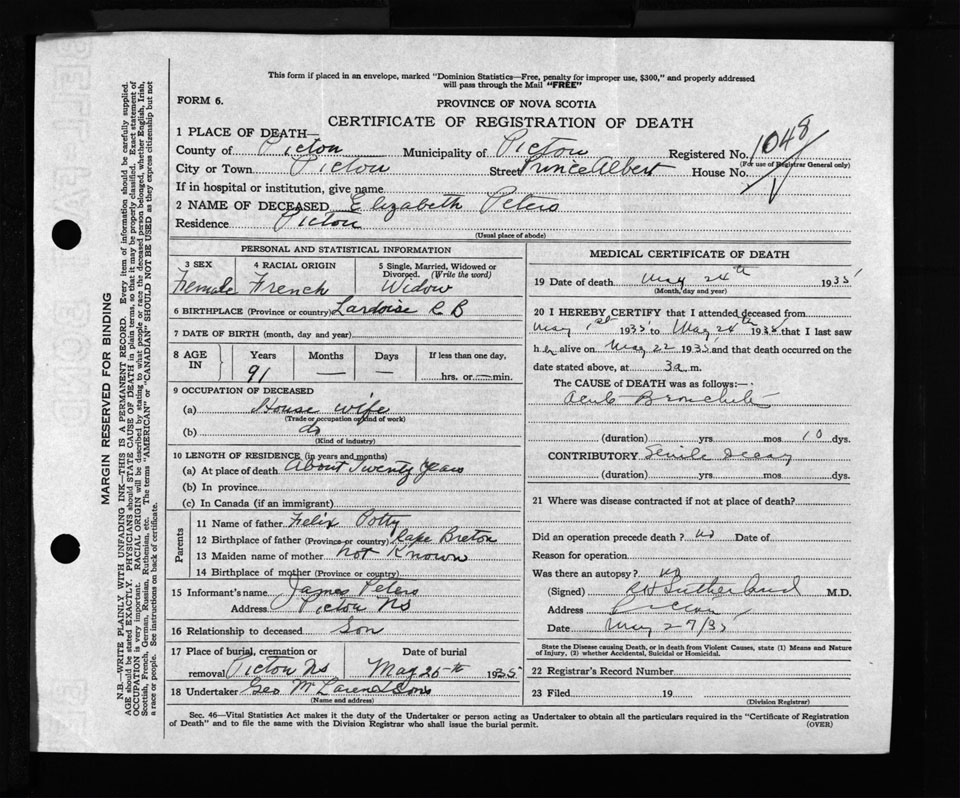 This form if placed in an envelope, marked "Dominion Statistics—Free, penalty for improper use, $300," and properly addressed
will pass through the Mail "FREE"
FORM 6.
PROVINCE OF NOVA SCOTIA
CERTIFICATE OF REGISTRATION OF DEATH
1 PLACE OF DEATH—
County of Pictou Municipality of Pictou Registered No. 1048
(For use of Registrar General only)
City or Town Pictou Street Prince Albert House No.
If in hospital or institution, give name
2 NAME OF DECEASED Elizabeth Peters
Residence Pictou
(Usual place of abode)
PERSONAL AND STATISTICAL INFORMATION
3 SEX 4 RACIAL ORIGIN 5 Single, Married, Widowed or
Divorced. (Write the word)
Female French Widow
6 BIRTHPLACE (Province or country) Lardoise C B
7 DATE OF BIRTH (month, day and year)
8 AGE IN Years Months Days If less than one day,
91 — — hrs. or — min.
9 OCCUPATION OF DECEASED
(a) House wife
(Trade or occupation or kind of work)
(b) do
(Kind of industry)
10 LENGTH OF RESIDENCE (in years and months)
(a) At place of death About Twenty Years
(b) In province
(c) In Canada (if an immigrant)
Parents
11 Name of father Felix Potty
12 Birthplace of father (Province or country) Cape Breton
13 Maiden name of mother not Known
14 Birthplace of mother (Province or country)
15 Informant's name James Peters
Address Pictou Ns
16 Relationship to deceased Son
17 Place of burial, cremation or Date of burial
removal Pictou Ns May 25th 1935
18 Undertaker Geo McLaren & Sons
(Name and address)
MEDICAL CERTIFICATE OF DEATH
19 Date of death May 24th 1935
(Month, day and year)
20 I HEREBY CERTIFY that I attended deceased from
May 1st 1935 to May 24th 1935 that I last saw
her alive on May 22 1935 and that death occurred on the
date stated above, at 3 a.m.
The CAUSE OF DEATH was as follows:—
Acute Bronchitis
(duration) yrs. mos 10 dys.
CONTRIBUTORY Senile decay
(duration) yrs. mos. dys.
21 Where was disease contracted if not at place of death?
Did an operation precede death? no Date of
Reason for operation
Was there an autopsy? no
(Signed) Sutherland M.D.
Address Pictou
Date May 27/35
State the Disease causing Death, or in death from Violent Causes, state (1) Means and Nature
of Injury, (2) whether Accidental, Suicidal or Homicidal.
22 Registrar's Record Number
23 Filed 19
(Division Registrar)
Sec. 46—Vital Statistics Act makes it the duty of the Undertaker or person acting as Undertaker to obtain all the particulars required in the "Certificate of Registration
of Death" and to file the same with the Division Registrar who shall issue the burial permit. (OVER)
MARGIN RESERVED FOR BINDING
N.B.—WRITE PLAINLY WITH UNFADING INK—THIS IS A PERMANENT RECORD. Every item of information should be carefully supplied.
AGE should be stated EXACTLY. PHYSICIANS should STATE CAUSE OF DEATH in plain terms, so that it may be properly classified. Exact statement of
OCCUPATION is very important. RACIAL ORIGIN will be described by stating to what people or race the deceased person belonged, whether English, Irish,
Scottish, French, German, Russian, Ruthenian, etc. The terms "AMERICAN" or "CANADIAN" SHOULD NOT BE USED as they express citizenship but not
a race or people. See instructions on back of certificate.